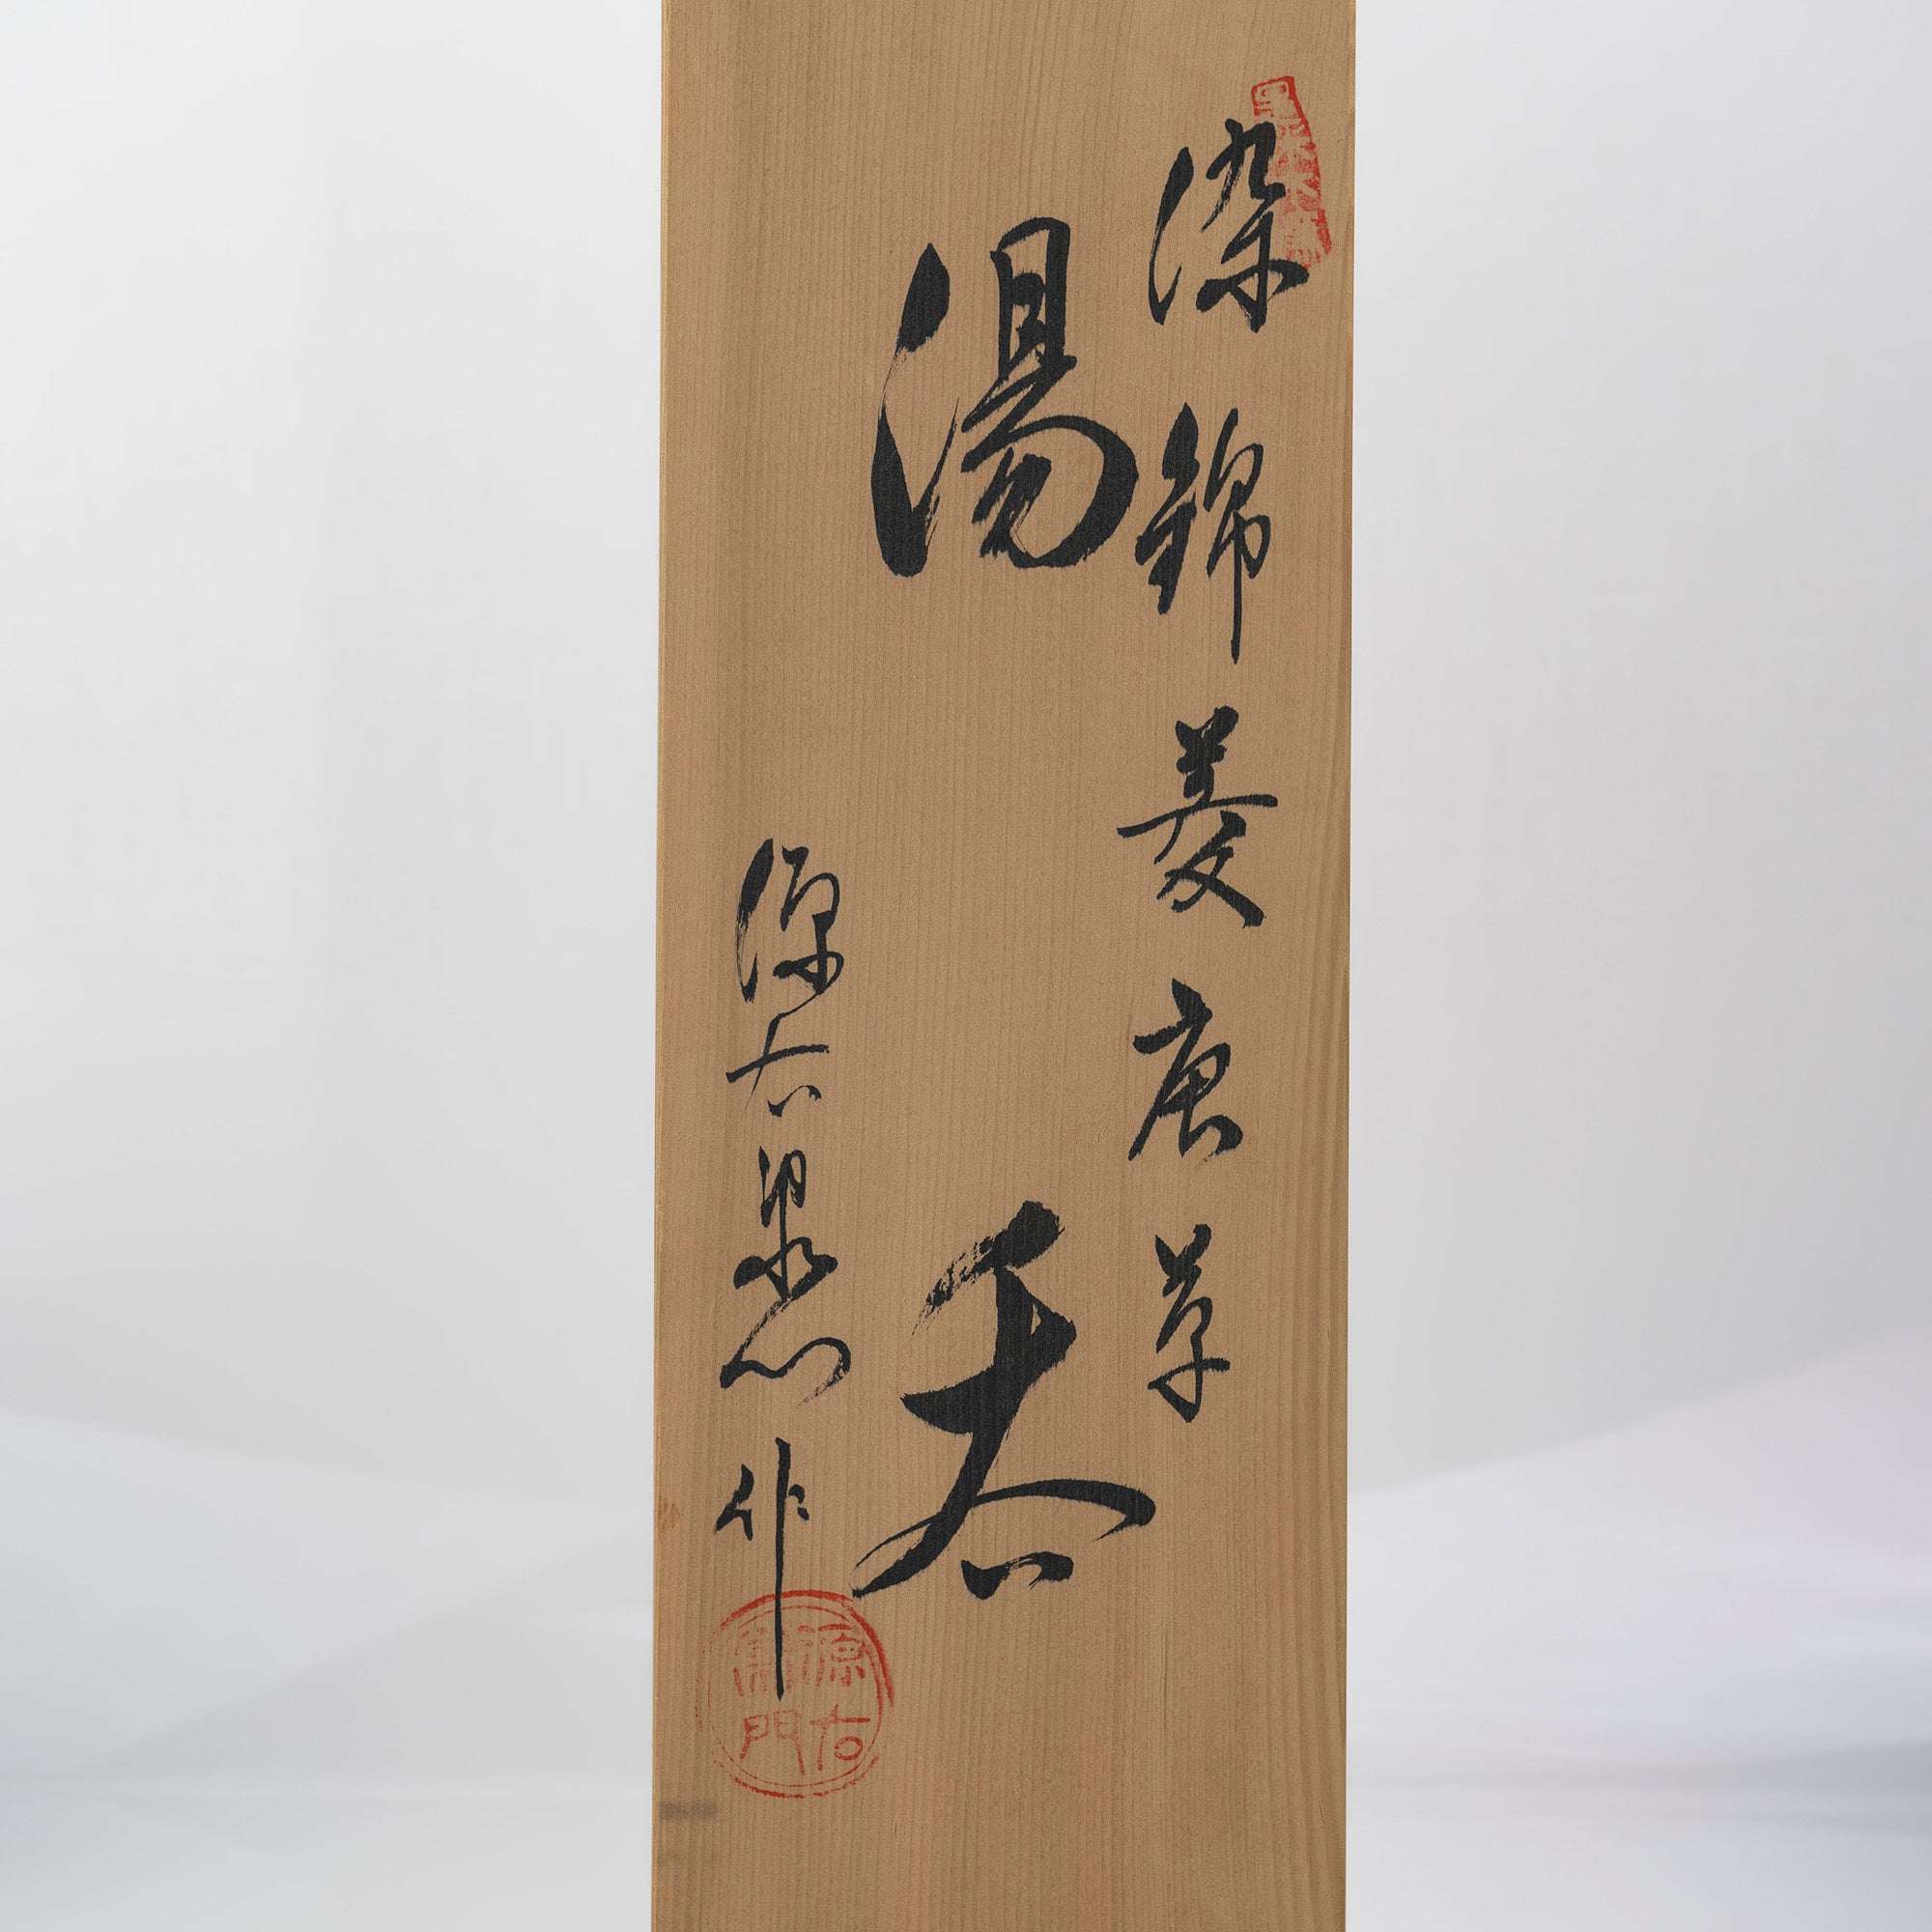 染錦菱唐草
湯呑
源右衛門作
源右
衛門